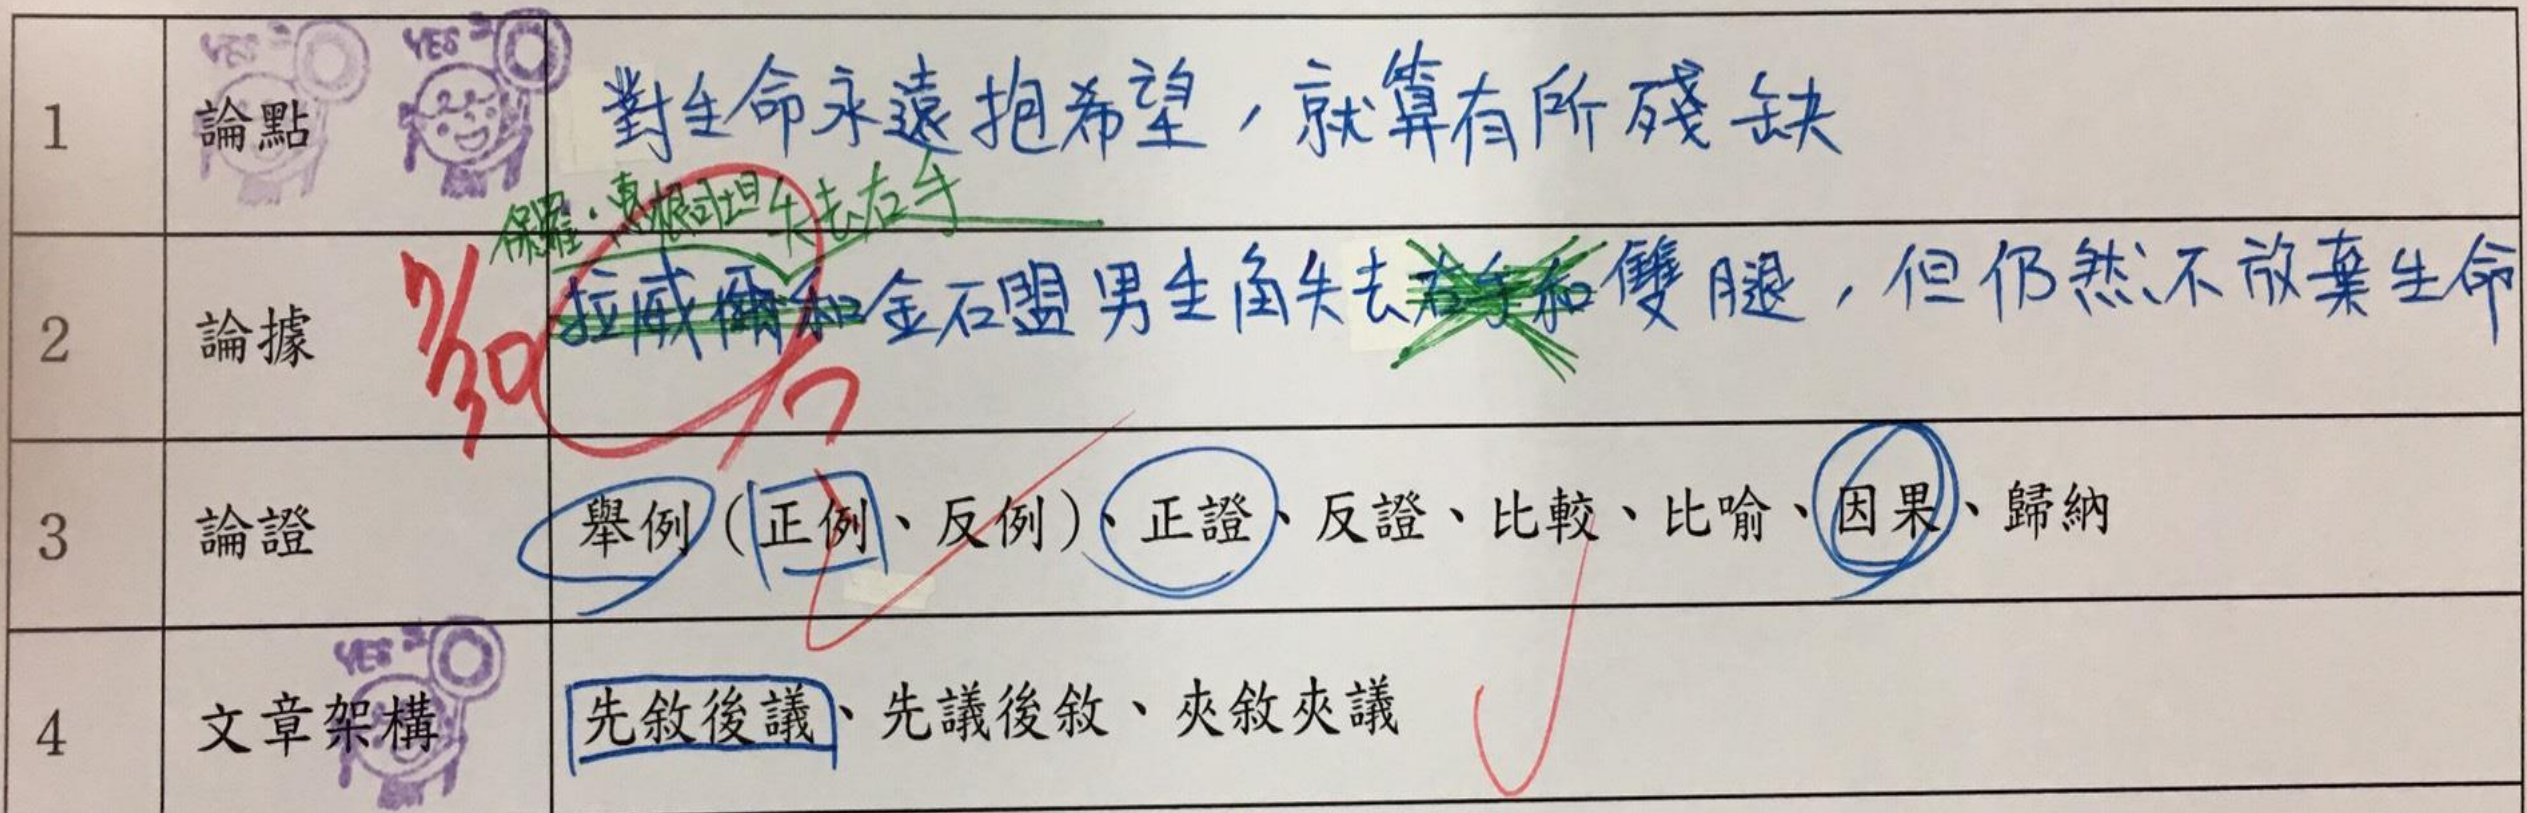 1 論點 YES YES 對生命永遠抱希望，就算有所殘缺
保羅·惠根斯坦失去右手
2 論據 7/30 拉威爾和金石盟男主角失去右手和雙腿，但仍然不放棄生命
3 論證 舉例（正例、反例）、正證、反證、比較、比喻、因果、歸納
4 文章架構 YES 先敘後議、先議後敘、夾敘夾議